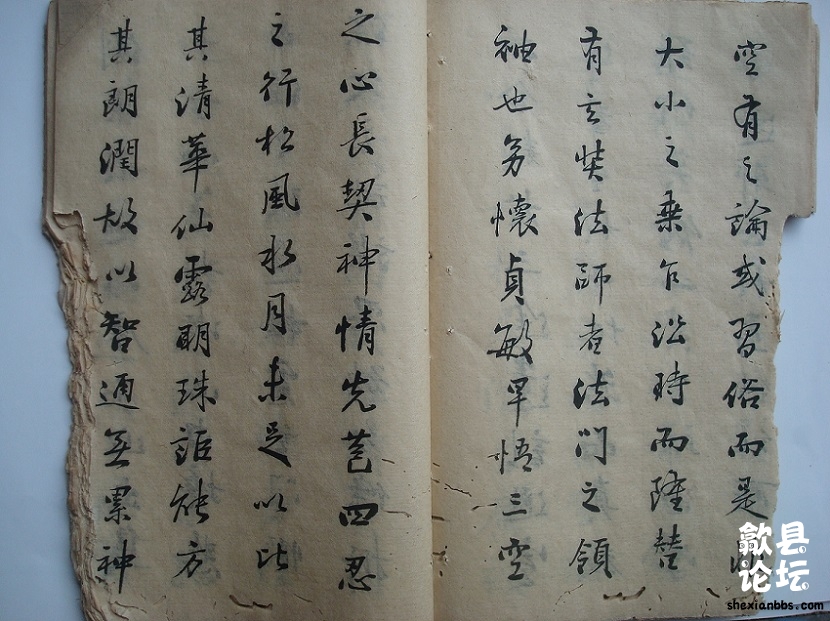 空有之論或習俗而是非
大小之乘乍沿時而隆替
有玄奘法師者法門之領
袖也幼懷貞敏早悟三空
之心長契神情先苞四忍
之行松風水月未足以比
其清華仙露明珠詎能方
其朗潤故以智通無累神
歙县
论坛
shexianbbs.com